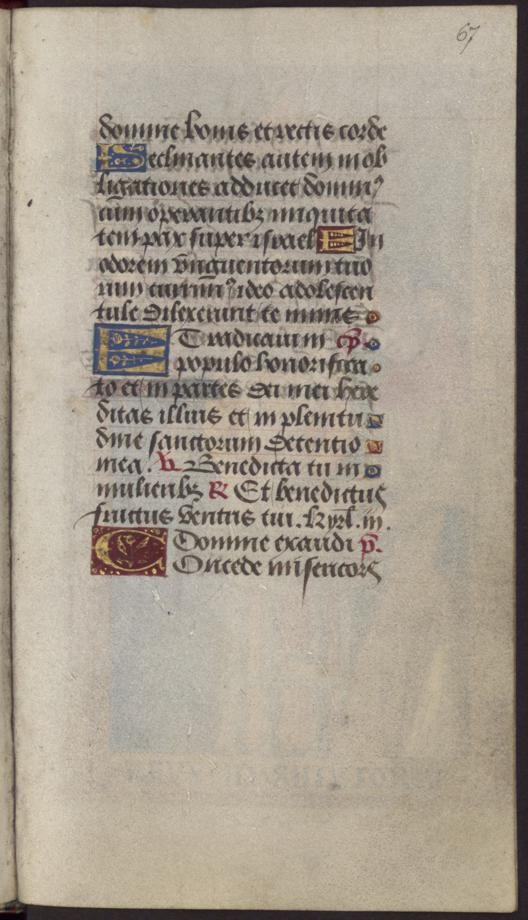 67
domine bonis et rectis corde
Declinantes autem in ob
ligationes adducet domin9
cum operantibz iniquita
tem pax super israel In
odorem vnguentorum tuo
rum currim9 ideo adolescen
tule dilexerunt te nimis
ET radicaui in cp.
populo honorifica
to et in partes dei mei here
ditas illius et in plenitu
dine sanctorum detentio
mea. v. Benedicta tu in
mulieribz R Et benedictus
fructus ventris tui. kyrl. in.
Domine exaudi p.
COncede misericors